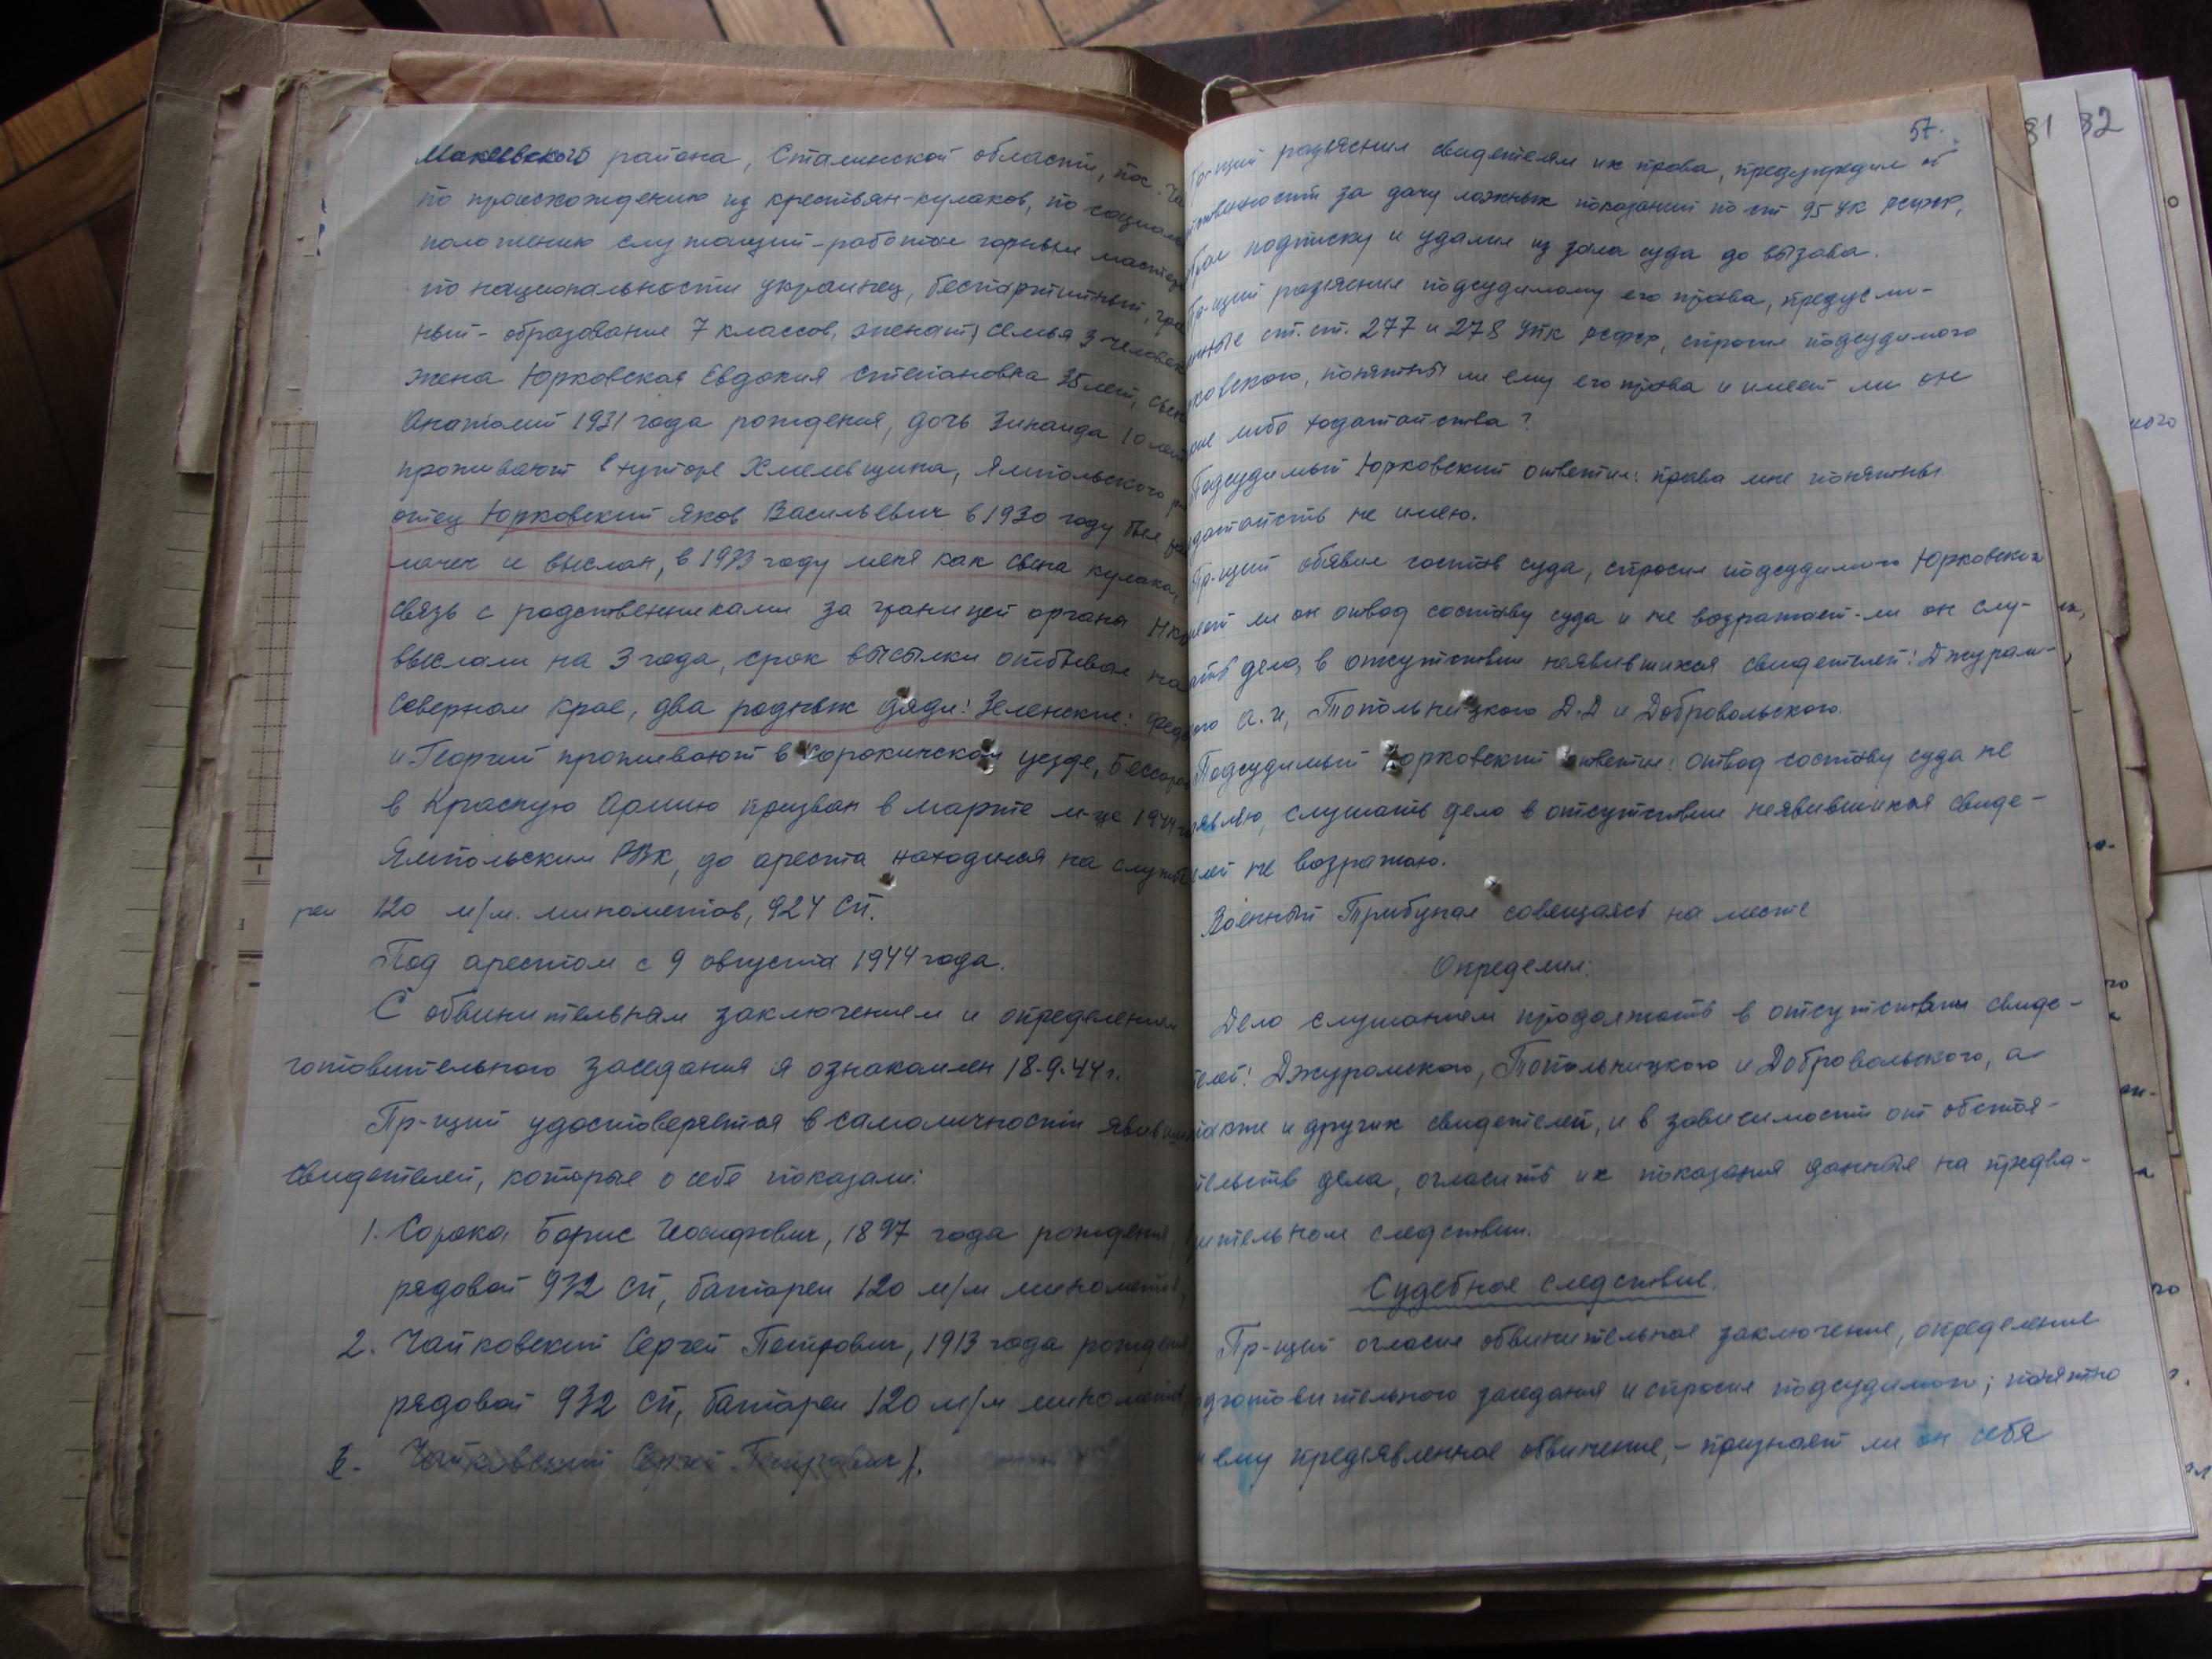 Макеевского района, Сталинской области, пос.
по происхождению из крестьян-кулаков, по социаль
положению служащий-работал горным мастер
по национальности украинец, беспартийный, гра
ный - образование 7 классов, женат, семья 3 человек
жена Юрковская Евдокия Степановна 35 лет, сын
Анатолий 1931 года рождения, дочь Зинаида 10 лет
проживают в хуторе Хмелевщина, Ямпольского р
отец Юрковский Яков Васильевич в 1930 году был
лачен и выслан, в 1933 году меня как сына кулака,
связь с родственниками за границей органы НК
выслали на 3 года, срок высылки отбывал на
Северном крае, два родных дяди: Зеленские: Федо
и Георгий проживают в Сорокинском уезде, Бессара
в Красную Армию призван в марте м-це 1944 г
Ямпольским РВК, до ареста находился на службе
реи 120 м/м. минометов, 924 СП.
Под арестом с 9 августа 1944 года.
С обвинительным заключением и определением
готовительного заседания я ознакомлен 18.9.44 г.
Пр-щий удостоверяется в самоличности явивши
свидетелей, которые о себе показали:
1. Сорока Борис Иосифович, 1897 года рождения,
рядовой 932 СП, батареи 120 м/м минометов,
2. Чайковский Сергей Петрович, 1913 года рождения
рядовой 932 СП, батареи 120 м/м минометов
3. Чайковский Сергей Петрович).
57.
Пр-щий разъяснил свидетелям их права, предупредил от
ственности за дачу ложных показаний по ст 95 УК РСФСР,
брал подписку и удалил из зала суда до вызова.
Пр-щий разъяснил подсудимому его права, предусмо-
енные ст.ст. 277 и 278 УПК РСФСР, спросил подсудимого
рковского, понятны ли ему его права и имеет ли он
кие либо ходатайства?
Подсудимый Юрковский ответил: права мне понятны
датайств не имею.
Пр-щий объявил состав суда, спросил подсудимого Юрковского
меет ли он отвод составу суда и не возражает-ли он слу-
ать дело, в отсутствии неявившихся свидетелей: Джурам-
кого А.И, Топольницкого Д.Д и Добровольского.
Подсудимый Юрковский ответил: отвод составу суда не
аявляю, слушать дело в отсутствии неявившихся свиде-
елей не возражаю.
Военный Трибунал совещаясь на месте
Определил:
Дело слушанием продолжать в отсутствии свиде-
телей: Джурамского, Топольницкого и Добровольского, а
также и других свидетелей, и в зависимости от обстоя-
тельств дела, огласить их показания данные на предва-
рительном следствии.
Судебное следствие.
Пр-щий огласил обвинительное заключение, определение
одготовительного заседания и спросил подсудимого; понятно
и ему предъявленное обвинение, - признает ли он себя
81 82
кого